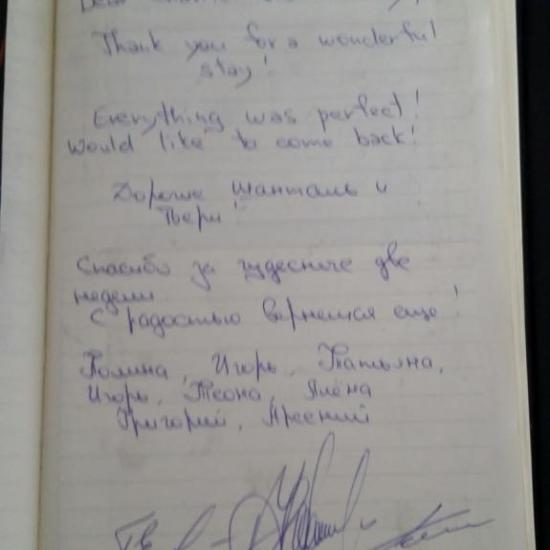 Thank you for a wonderful
stay!
Everything was perfect!
Would like to come back!
Дорогие Шанталь и
Тьери!
Спасибо за чудесные две
недели.
С радостью вернемся еще!
Полина, Игорь, Татьяна,
Игорь, Теона, Алёна
Григорий, Арсений